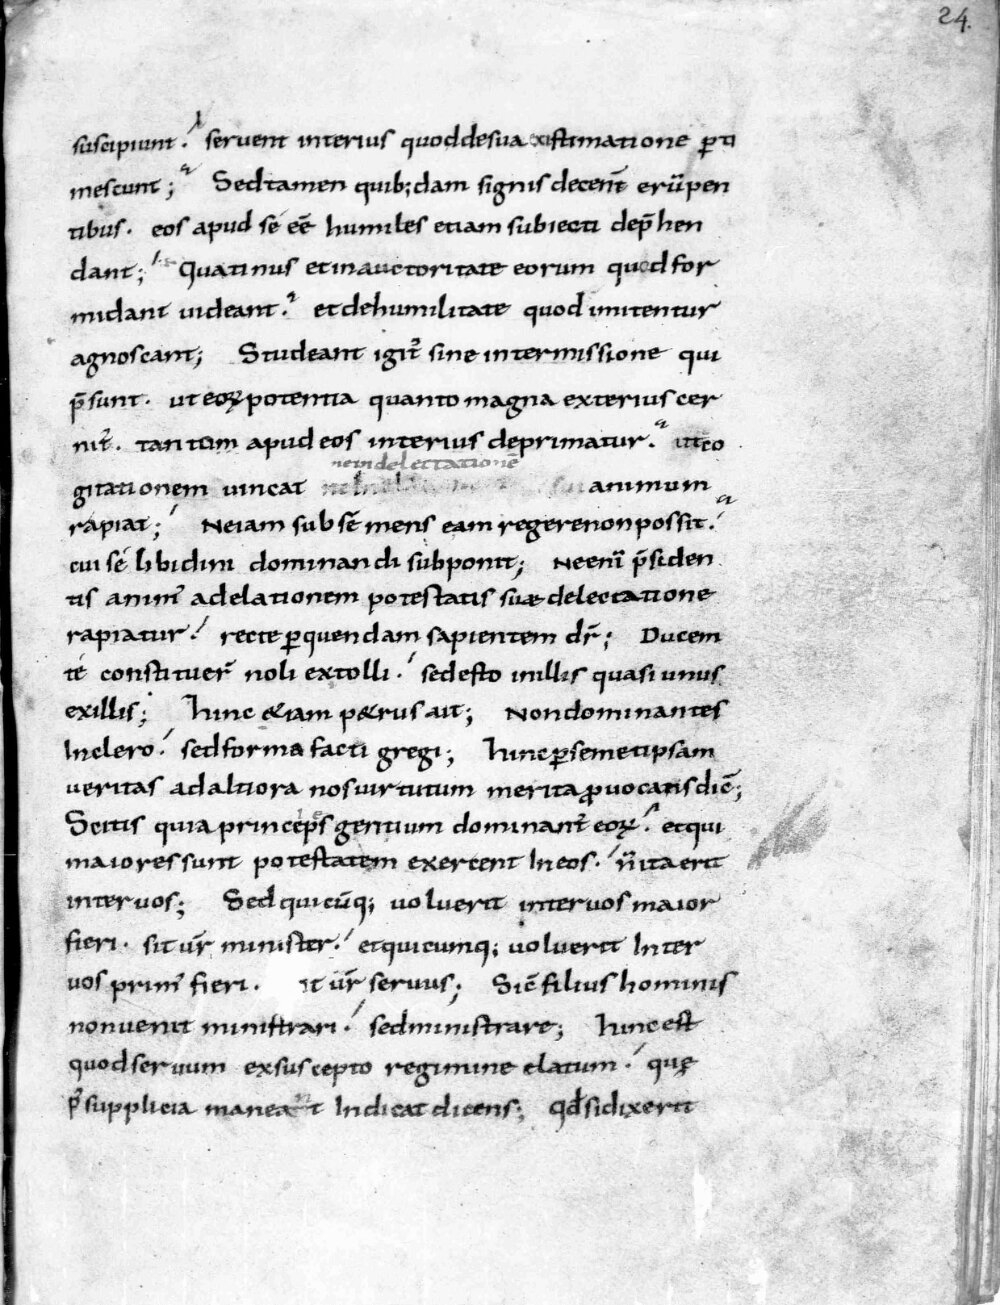 24.
suscipiunt. servent interius quod de sua existimatione p̱ti
mescunt; Sed tamen quib; dam signis decent̄ erūpen
tibus. eos apud sé eē humiles etiam subiecti dep̄hen
dant; Quatinus et in auctoritate eorum quod for
midant uideant. et de humilitate quod imitentur
agnoscant; Studeant igit̄ sine intermissione qui
p̄sunt. ut eoꝝ potentia quanto magna exterius cer
nit̄. tantum apud eos interius deprimatur. ut eo
nein delectationē
gitationem uincat animum
rapiat; Ne iam sub sē mens eam regere non possit.
cui sé libidini dominandi subponit; Ne eni̅ p̄siden
tis anim̄ ad elationem potestatis suae delectatione
rapiatur. recte ꝑ quendam sapientem dr̄; Ducem
té constituer̄ noli extolli. sed esto in illis quasi unus
ex illis; hinc &iam p&rus ait; Non dominantes
In clero. sed forma facti gregi; hinc ꝑ semetipsam
veritas ad altiora nos uirtutum merita ꝓuocans dic̄;
Scitis quia princeps gentium dominant̄ eoꝝ. et qui
maiores sunt potestatem exercent In eos. n̄ ita erit
inter uos; Sed quicūq; uoluerit inter uos maior
fieri. sit ur̄ minister. et quicumq; uoluerit Inter
uos prim̄ fieri. it ur̄ seruus; Sic̄ filius hominis
non uenit ministrari. sed ministrare; hinc est
quod seruum ex suscepto regimine elatum. quę
p̾ supplicia maneant Indicat dicens; Qđ si dixerit